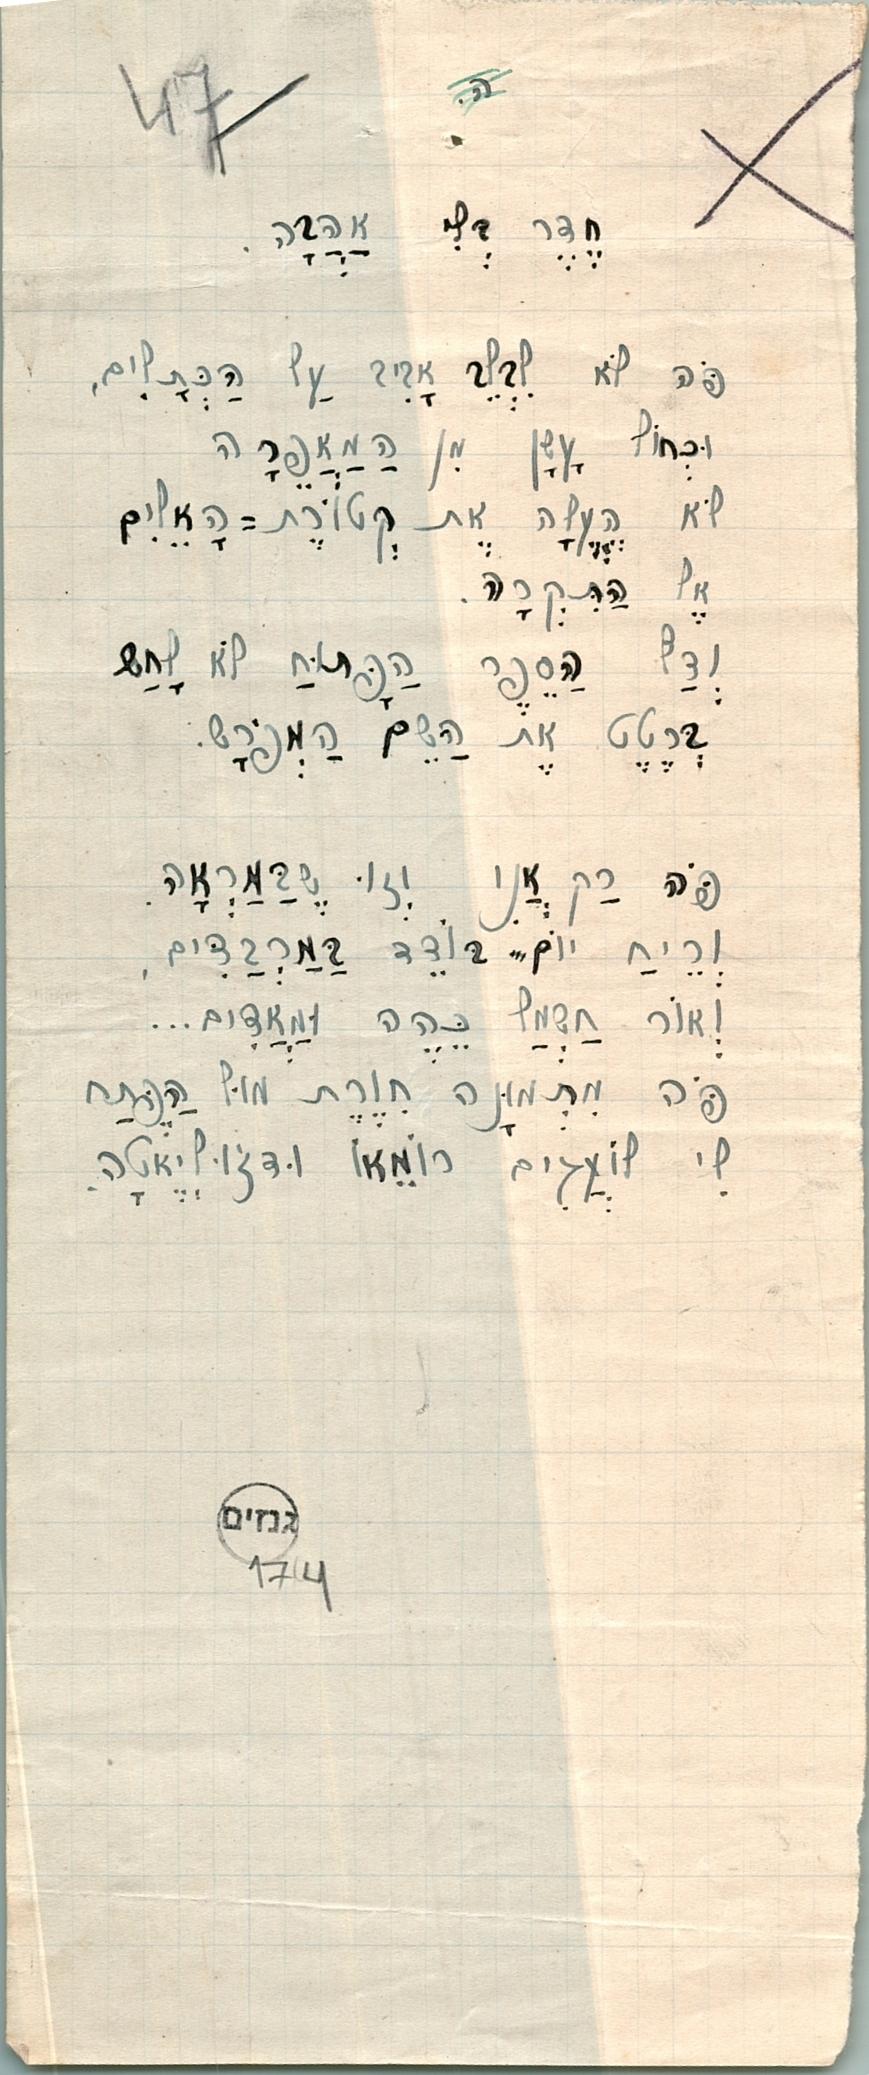 47
ה.
חֶדֶר בְּלִי אַהֲבָה.
פֹּה לֹא לִבְלֵב אָבִיב עַל הַכְּתָלִים,
וּכְחוֹל עָשָׁן מִן הַמַּאֲפֵרָה
לֹא הֶעֱלָה אֶת קְטוֹרֶת=הָאֵלִים
אֶל הַתִּקְרָה.
וְדַל הַסֵּפֶר הַפָּתוּחַ לֹא לָחַשׁ
בְּרֶטֶט אֶת הַשֵּׁם הַמְּפֹרָשׁ.
פֹּה רַק אֲנִי וְזוֹ שֶׁבַּמַּרְאָה.
וְרֵיחַ יוֹם בּוֹדֵד בַּמַּרְבַדִּים,
וְאוֹר חַשְׁמַל כֵּהֶה וּמַאֲדִים...
פֹּה מִתְּמוּנָה חִוֶּרֶת מוּל הַפֶּתַח
לִי לוֹעֲגִים רוֹמֵאוֹ וּדְזוּלִיֶאטָה.
גנזים
174